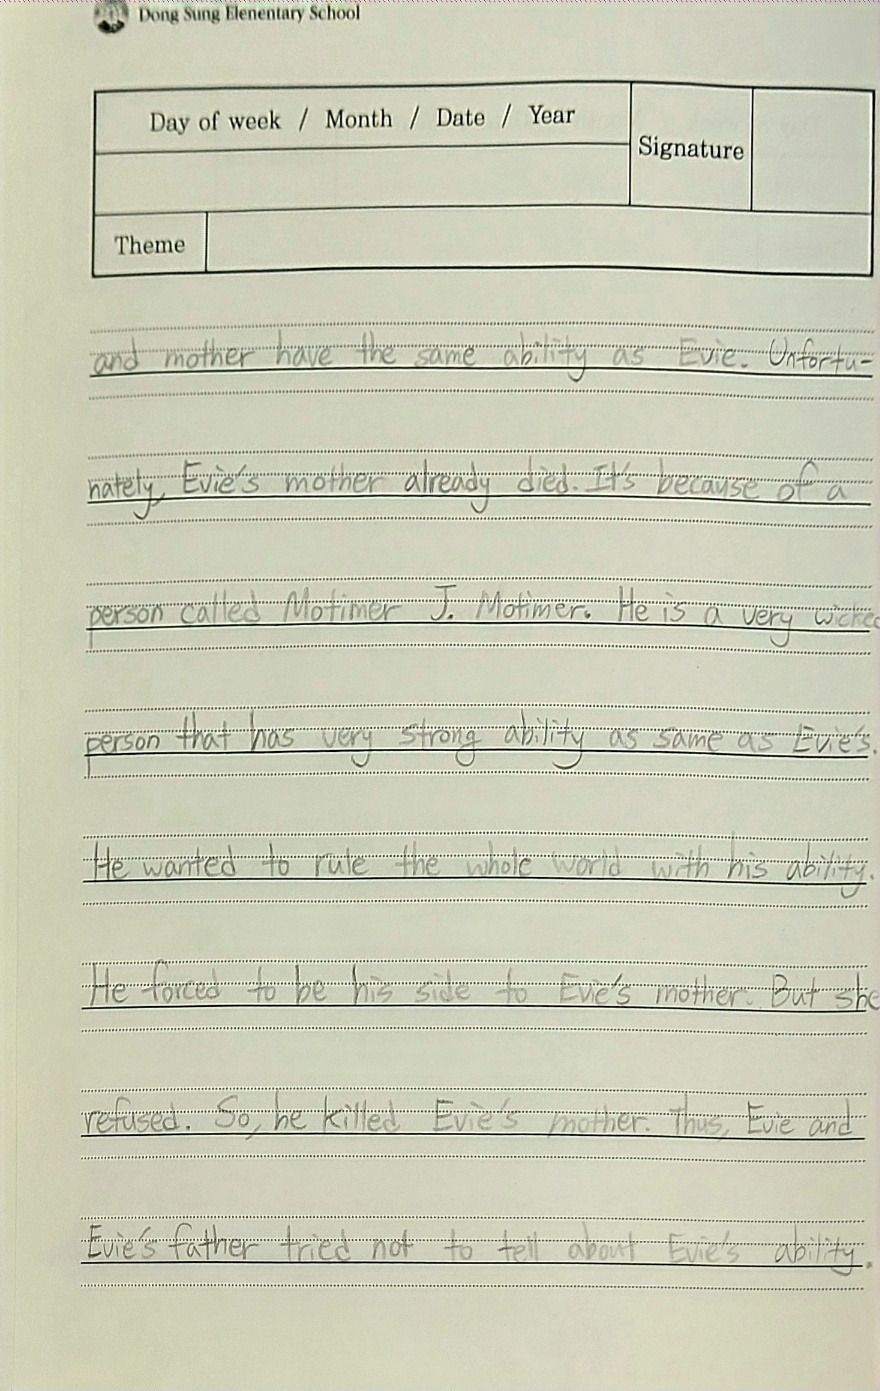 Dong Sung Elenentary School
Day of week / Month / Date / Year
Signature
Theme
and mother have the same ability as Evie. Unfortu-
nately, Evie's mother already died. It's because of a
person called Motimer J. Motimer. He is a very wicked
person that has very strong ability as same as Evie's.
He wanted to rule the whole world with his ability.
He forced to be his side to Evie's mother. But she
refused. So, he killed Evie's mother. Thus, Evie and
Evie's father tried not to tell about Evie's ability.